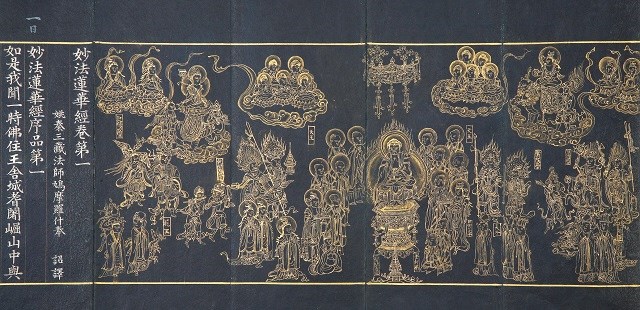 妙法蓮華經卷第一
姚秦三藏法師鳩摩羅什奉 詔譯
妙法蓮華經序品第一
如是我聞一時佛住王舍城耆闍崛山中與
一日